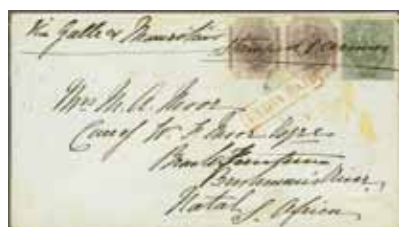 Via Galle & Mauritius
Stamped 
Mrs M. A. Moor
Care of W. F. Moor Esqre
INDIA PAID
Bushman's River
Natal S. Africa